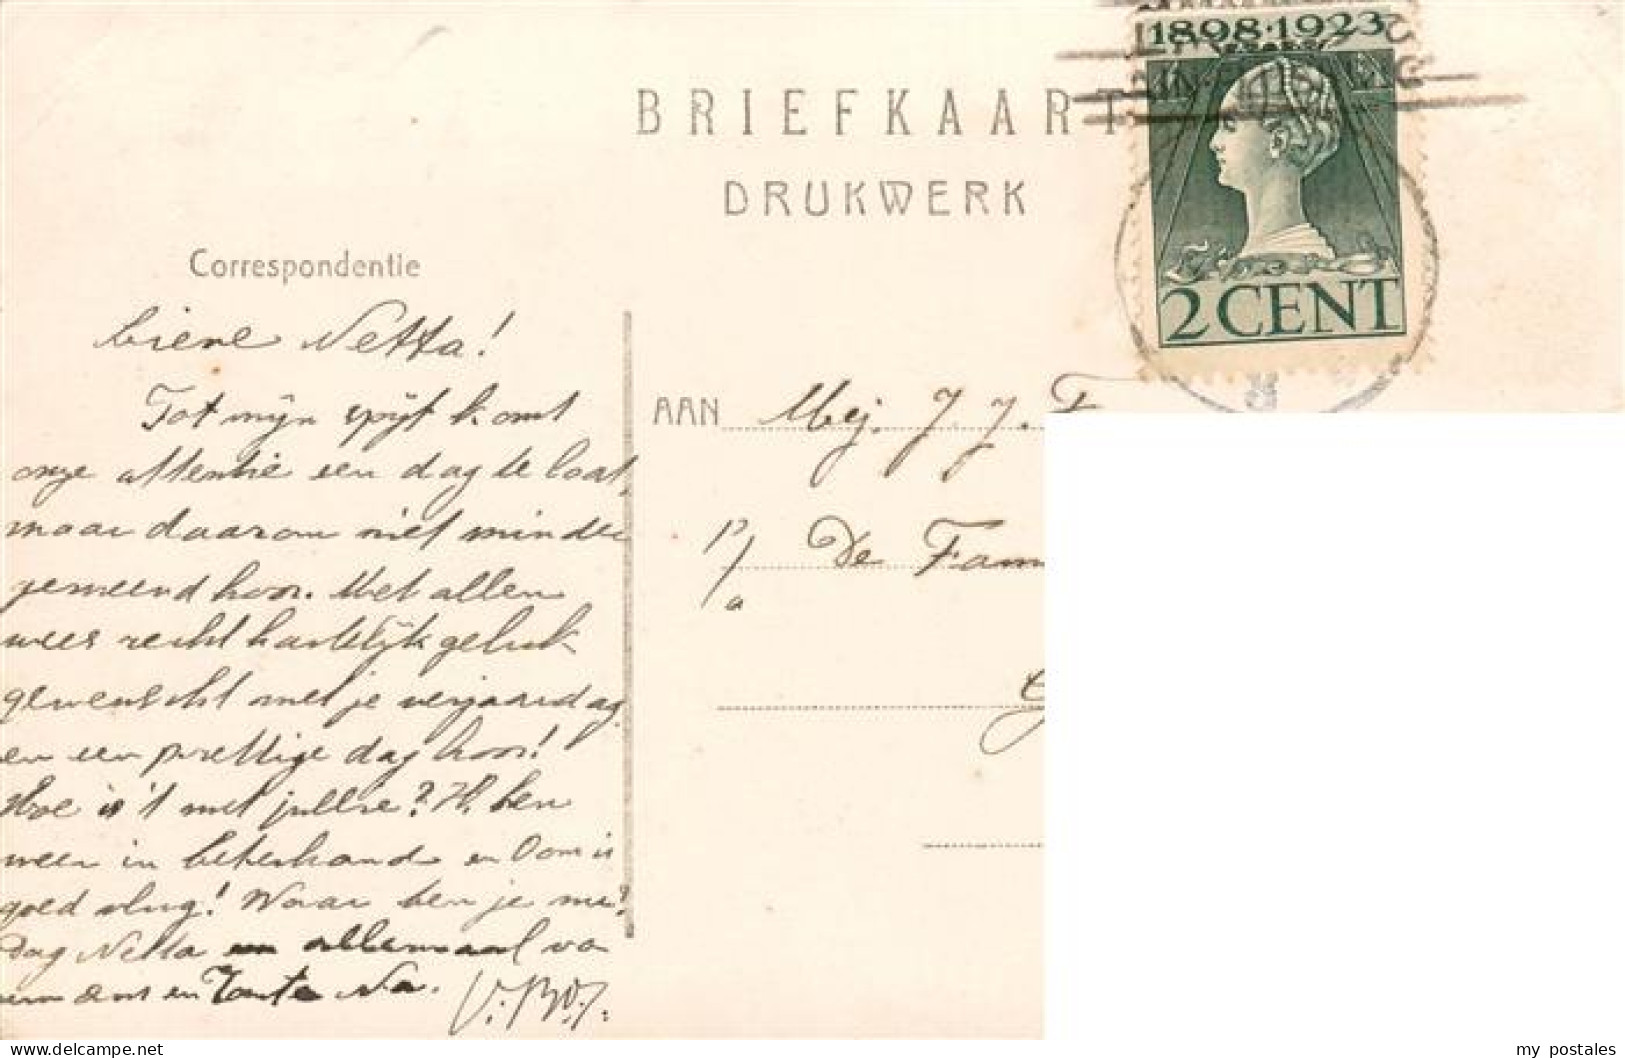 1898·1923
2 CENT
BRIEFKAART
DRUKWERK
Correspondentie
Lieve Netta!
Tot mijn spijt komt
onze attentie een dag te laat,
maar daarom niet minder
gemeend hoor. Met allen
wees recht hartelijk geluk
gewenscht met je verjaardag
en een prettige dag hoor!
Hoe is 't met jullie? Ik ben
weer in beterhand en Oom is
goed vlug! Waar ben je nu?
Dag Netta en allemaal va
en Tante Na.
AAN Mej. J. J. F
P/a De Fam
my postales
www.delcampe.net